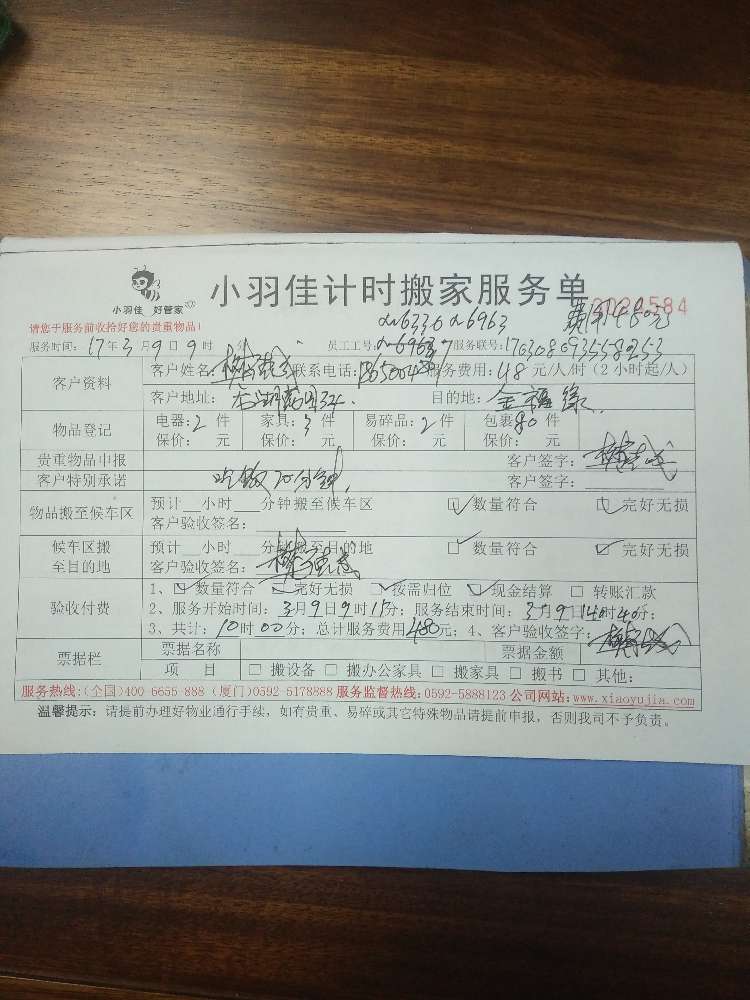 小羽佳 好管家
小羽佳计时搬家服务单
请您于服务前收拾好您的贵重物品!
费用480元
服务时间: 17年3月9日9时 员工工号: 服务联号:
客户资料 客户姓名: 联系电话: 服务费用: 48元/人/时(2小时起/人)
客户地址: 目的地: 金福缘
物品登记 电器: 2件 家具: 3件 易碎品: 2件 包裹 80件
保价: 元 保价: 元 保价: 元 保价: 元
贵重物品申报 客户签字:
客户特别承诺 吃饭20分钟 客户签字:
物品搬至候车区 预计__小时__分钟搬至候车区 数量符合 完好无损
客户验收签名:
候车区搬至目的地 预计__小时__分钟搬至目的地 数量符合 完好无损
客户验收签名:
验收付费 1、 数量符合 完好无损 按需归位 现金结算 转账汇款
2、服务开始时间: 3月9日9时11分; 服务结束时间: 3月9日14时40分;
3、共计: 10时00分; 总计服务费用480元; 4、客户验收签字:
票据栏 票据名称 票据金额
项 目 搬设备 搬办公家具 搬家具 搬书 其他:
服务热线:(全国)400-6655-888 (厦门)0592-5178888 服务监督热线:0592-5888123 公司网站:www.xiaoyujia.com
温馨提示: 请提前办理好物业通行手续, 如有贵重、易碎或其它特殊物品请提前申报, 否则我司不予负责。